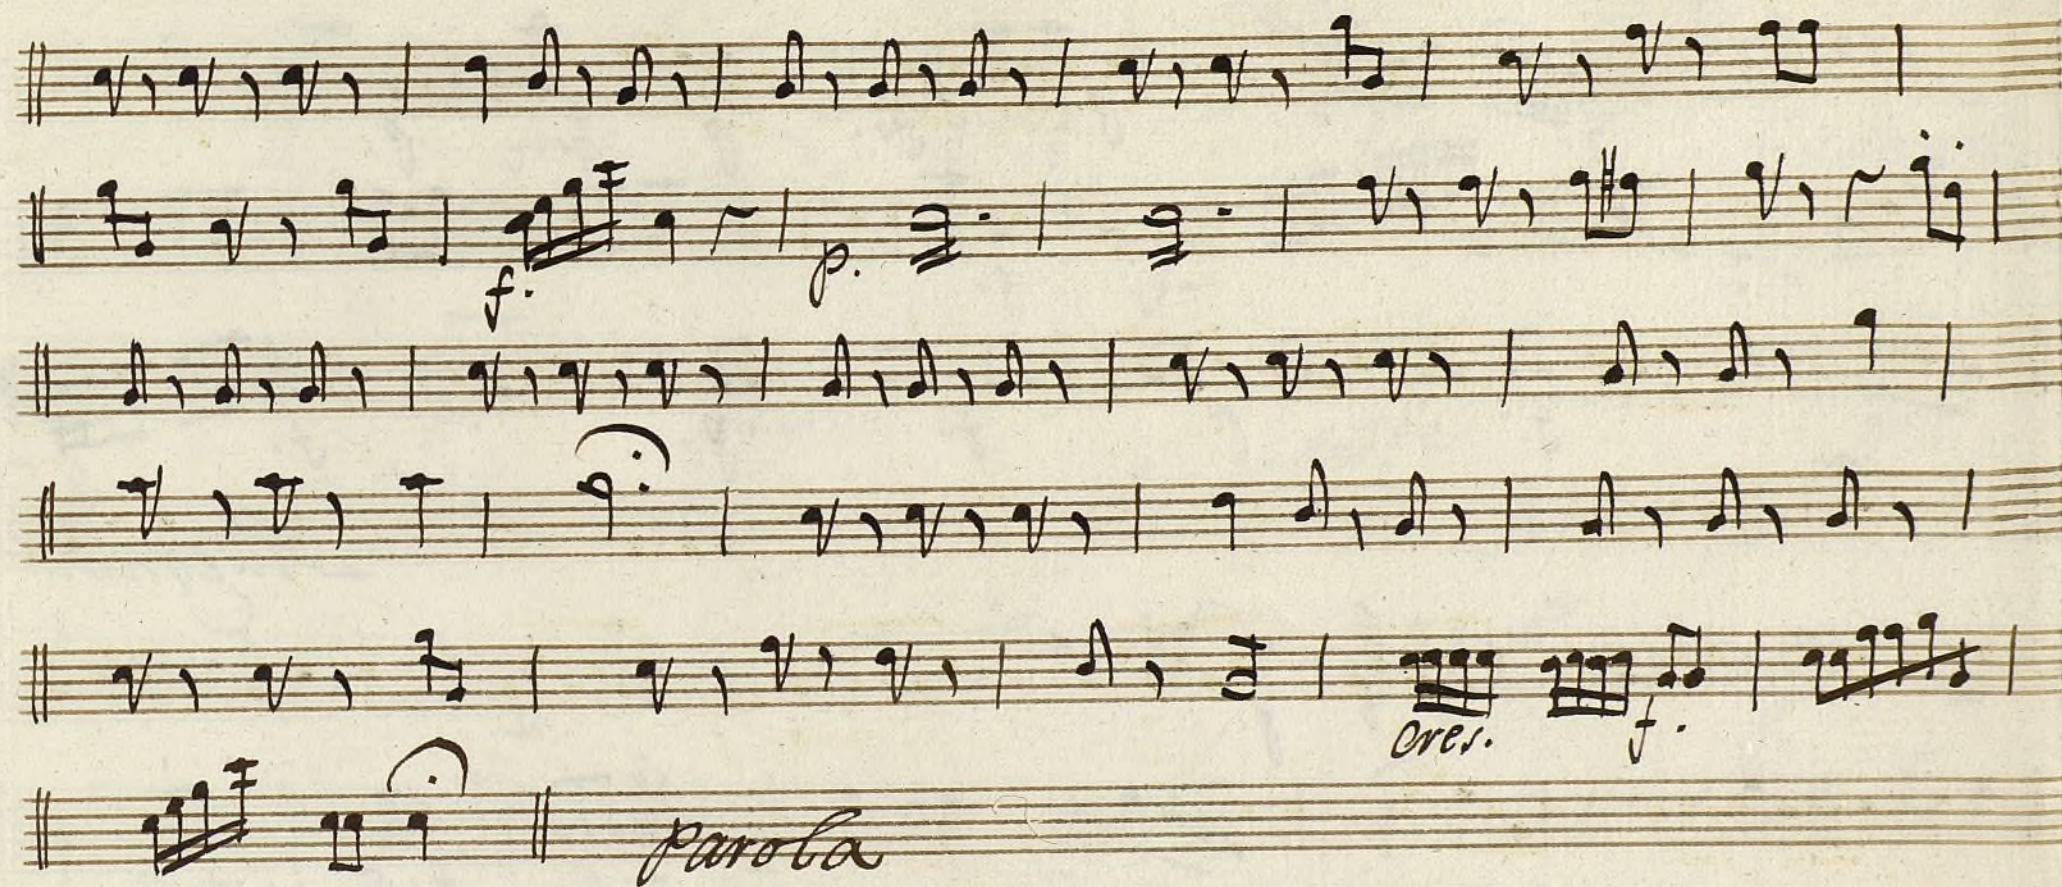 f.
p.
cres. f.
parola